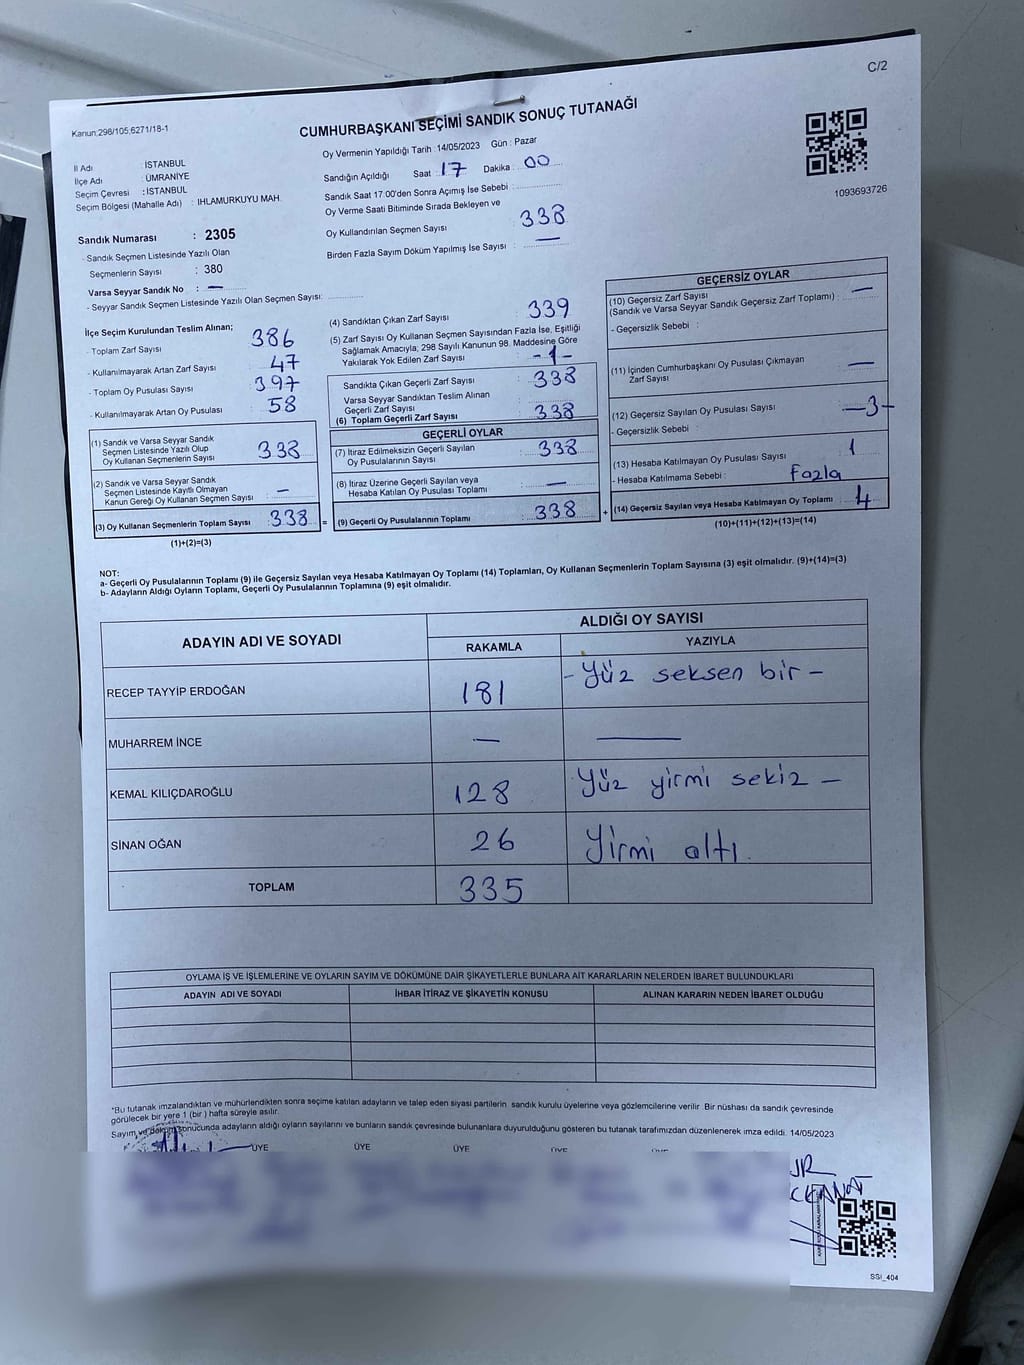 C/2
Kanun:298/105,6271/18-1
CUMHURBAŞKANI SEÇİMİ SANDIK SONUÇ TUTANAĞI
1093693726
İl Adı : İSTANBUL
İlçe Adı : ÜMRANİYE
Seçim Çevresi : İSTANBUL
Seçim Bölgesi (Mahalle Adı) : IHLAMURKUYU MAH.
Oy Vermenin Yapıldığı Tarih :14/05/2023 Gün : Pazar
Sandığın Açıldığı Saat : 17 Dakika : 00
Sandık Saat 17.00'den Sonra Açımış İse Sebebi :
Oy Verme Saati Bitiminde Sırada Bekleyen ve
Oy Kullandırılan Seçmen Sayısı : 338
Birden Fazla Sayım Döküm Yapılmış İse Sayısı : —
Sandık Numarası : 2305
- Sandık Seçmen Listesinde Yazılı Olan
Seçmenlerin Sayısı : 380
Varsa Seyyar Sandık No : —
- Seyyar Sandık Seçmen Listesinde Yazılı Olan Seçmen Sayısı:
İlçe Seçim Kurulundan Teslim Alınan;
- Toplam Zarf Sayısı : 386
- Kullanılmayarak Artan Zarf Sayısı : 47
- Toplam Oy Pusulası Sayısı : 397
- Kullanılmayarak Artan Oy Pusulası : 58
(1) Sandık ve Varsa Seyyar Sandık
Seçmen Listesinde Yazılı Olup
Oy Kullanan Seçmenlerin Sayısı : 338
(2) Sandık ve Varsa Seyyar Sandık
Seçmen Listesinde Kayıtlı Olmayan
Kanun Gereği Oy Kullanan Seçmen Sayısı : —
(3) Oy Kullanan Seçmenlerin Toplam Sayısı :338 =
(1)+(2)=(3)
(4) Sandıktan Çıkan Zarf Sayısı : 339
(5) Zarf Sayısı Oy Kullanan Seçmen Sayısından Fazla İse, Eşitliği
Sağlamak Amacıyla; 298 Sayılı Kanunun 98. Maddesine Göre
Yakılarak Yok Edilen Zarf Sayısı : -1-
Sandıkta Çıkan Geçerli Zarf Sayısı : 338
Varsa Seyyar Sandıktan Teslim Alınan
Geçerli Zarf Sayısı :
(6) Toplam Geçerli Zarf Sayısı : 338
GEÇERLİ OYLAR
(7) İtiraz Edilmeksizin Geçerli Sayılan
Oy Pusulalarının Sayısı : 338
(8) İtiraz Üzerine Geçerli Sayılan veya
Hesaba Katılan Oy Pusulası Toplamı : —
(9) Geçerli Oy Pusulalarının Toplamı : 338 +
GEÇERSİZ OYLAR
(10) Geçersiz Zarf Sayısı
(Sandık ve Varsa Seyyar Sandık Geçersiz Zarf Toplamı) : —
- Geçersizlik Sebebi :
(11) İçinden Cumhurbaşkanı Oy Pusulası Çıkmayan
Zarf Sayısı : —
(12) Geçersiz Sayılan Oy Pusulası Sayısı : —3-
- Geçersizlik Sebebi :
(13) Hesaba Katılmayan Oy Pusulası Sayısı : 1
- Hesaba Katılmama Sebebi : fazla
(14) Geçersiz Sayılan veya Hesaba Katılmayan Oy Toplamı : 4
(10)+(11)+(12)+(13)=(14)
NOT:
a- Geçerli Oy Pusulalarının Toplamı (9) ile Geçersiz Sayılan veya Hesaba Katılmayan Oy Toplamı (14) Toplamları, Oy Kullanan Seçmenlerin Toplam Sayısına (3) eşit olmalıdır. (9)+(14)=(3)
b- Adayların Aldığı Oyların Toplamı, Geçerli Oy Pusulalarının Toplamına (9) eşit olmalıdır.
ADAYIN ADI VE SOYADI ALDIĞI OY SAYISI
RAKAMLA YAZIYLA
RECEP TAYYİP ERDOĞAN 181 - Yüz seksen bir -
MUHARREM İNCE — —
KEMAL KILIÇDAROĞLU 128 Yüz yirmi sekiz —
SİNAN OĞAN 26 Yirmi altı.
TOPLAM 335
OYLAMA İŞ VE İŞLEMLERİNE VE OYLARIN SAYIM VE DÖKÜMÜNE DAİR ŞİKAYETLERLE BUNLARA AİT KARARLARIN NELERDEN İBARET BULUNDUKLARI
ADAYIN ADI VE SOYADI İHBAR İTİRAZ VE ŞİKAYETİN KONUSU ALINAN KARARIN NEDEN İBARET OLDUĞU
*Bu tutanak imzalandıktan ve mühürlendikten sonra seçime katılan adayların ve talep eden siyasi partilerin sandık kurulu üyelerine veya gözlemcilerine verilir. Bir nüshası da sandık çevresinde
görülecek bir yere 1 (bir ) hafta süreyle asılır.
Sayım ve döküm sonucunda adayların aldığı oyların sayılarını ve bunların sandık çevresinde bulunanlara duyurulduğunu gösteren bu tutanak tarafımızdan düzenlenerek imza edildi. 14/05/2023
ÜYE ÜYE ÜYE ÜYE
SSI_404